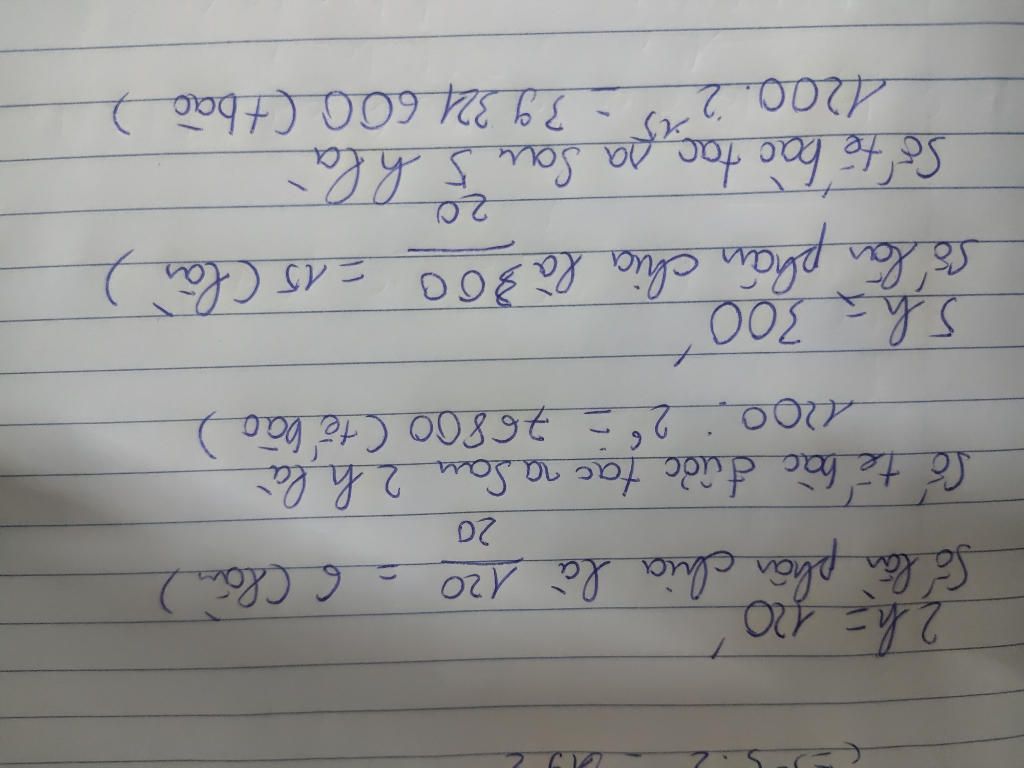 2h = 120'
Số lần phân chia là 120/20 = 6 (lần)
Số tế bào được tạo ra sau 2h là
1200 . 2⁶ = 76800 (tế bào)
5h = 300'
Số lần phân chia là 300/20 = 15 (lần)
Số tế bào tạo ra sau 5h là
1200 . 2¹⁵ = 39321600 (t bào)